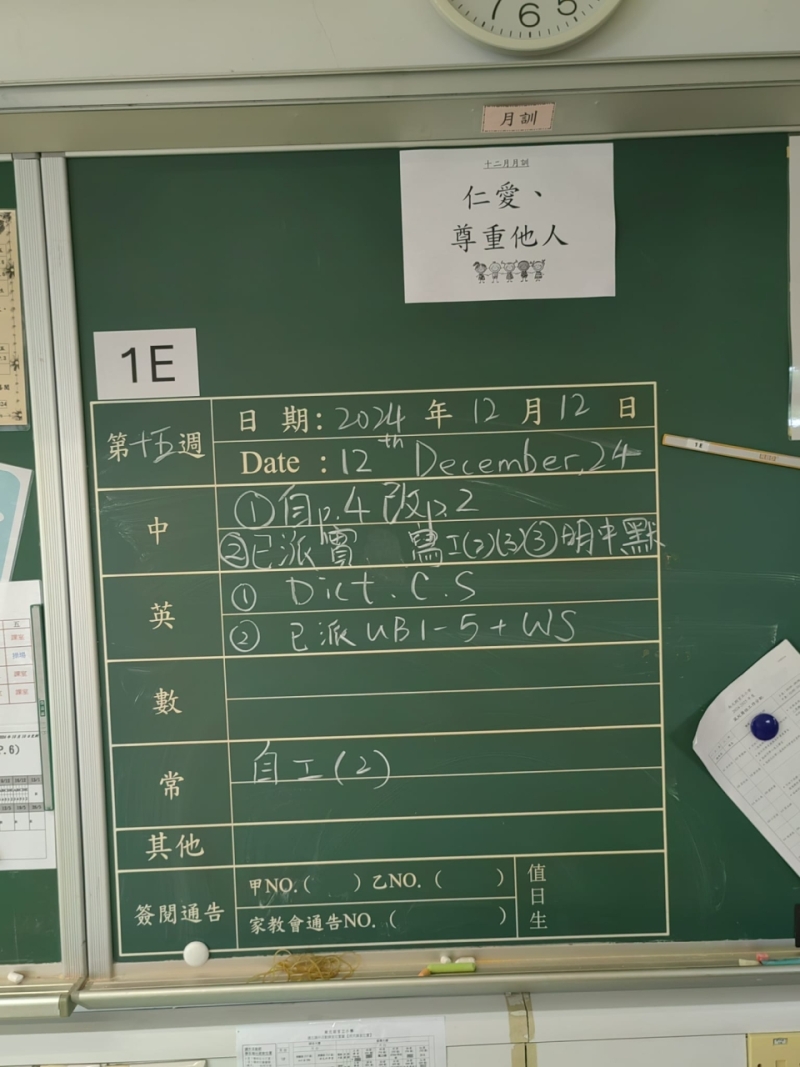 7 6 5
月訓
十二月月訓
仁愛、
尊重他人
1E
第十五週
日 期: 2024 年 12 月 12 日
Date : 12th December, 24
中
①自p.4 改p.2
②已派實 寫工(2)(3)③明中默
英
① Dict. C.S
② 已派UB1-5+WS
數
常
自工(2)
其他
簽閱通告
甲NO.( ) 乙NO. ( )
家教會通告NO. ( )
值日生
1E
P.6)